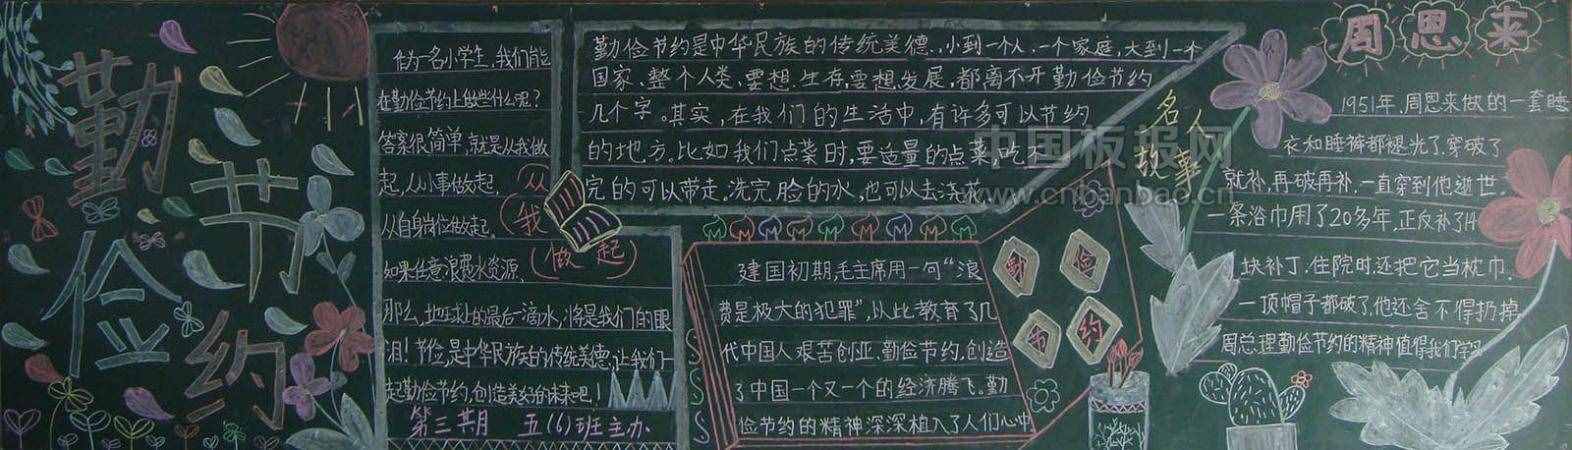 勤俭节约
作为一名小学生，我们能
在勤俭节约上做些什么呢？
答案很简单，就是从我做
起，从小事做起，
从自身岗位做起。
如果任意浪费水资源，
那么，地球上的最后一滴水，将是我们的眼
泪！节俭是中华民族的传统美德，让我们一
起勤俭节约，创造美好的未来吧！
第三期 五（6）班主办
从
我
做起
勤俭节约是中华民族的传统美德，小到一个人、一个家庭，大到一个
国家、整个人类，要想生存，要想发展，都离不开勤俭节约
几个字。其实，在我们的生活中，有许多可以节约
的地方。比如我们点菜时，要适量的点菜，吃不
完的可以带走。洗完脸的水，也可以去浇花。
建国初期，毛主席用一句“浪
费是极大的犯罪”，以此教育了几
代中国人艰苦创业、勤俭节约，创造
了中国一个又一个的经济腾飞。勤
俭节约的精神深深植入了人们心中
勤俭
节约
名人
故事
周恩来
1951年，周恩来做的一套睡
衣和睡裤都褪光了，穿破了
就补，再破再补，一直穿到他逝世。
一条浴巾用了20多年，正反补了14
块补丁。住院时，还把它当枕巾。
一顶帽子都破了，他还舍不得扔掉
周总理勤俭节约的精神值得我们学习
中国板报网
www.cnbanbao.cn